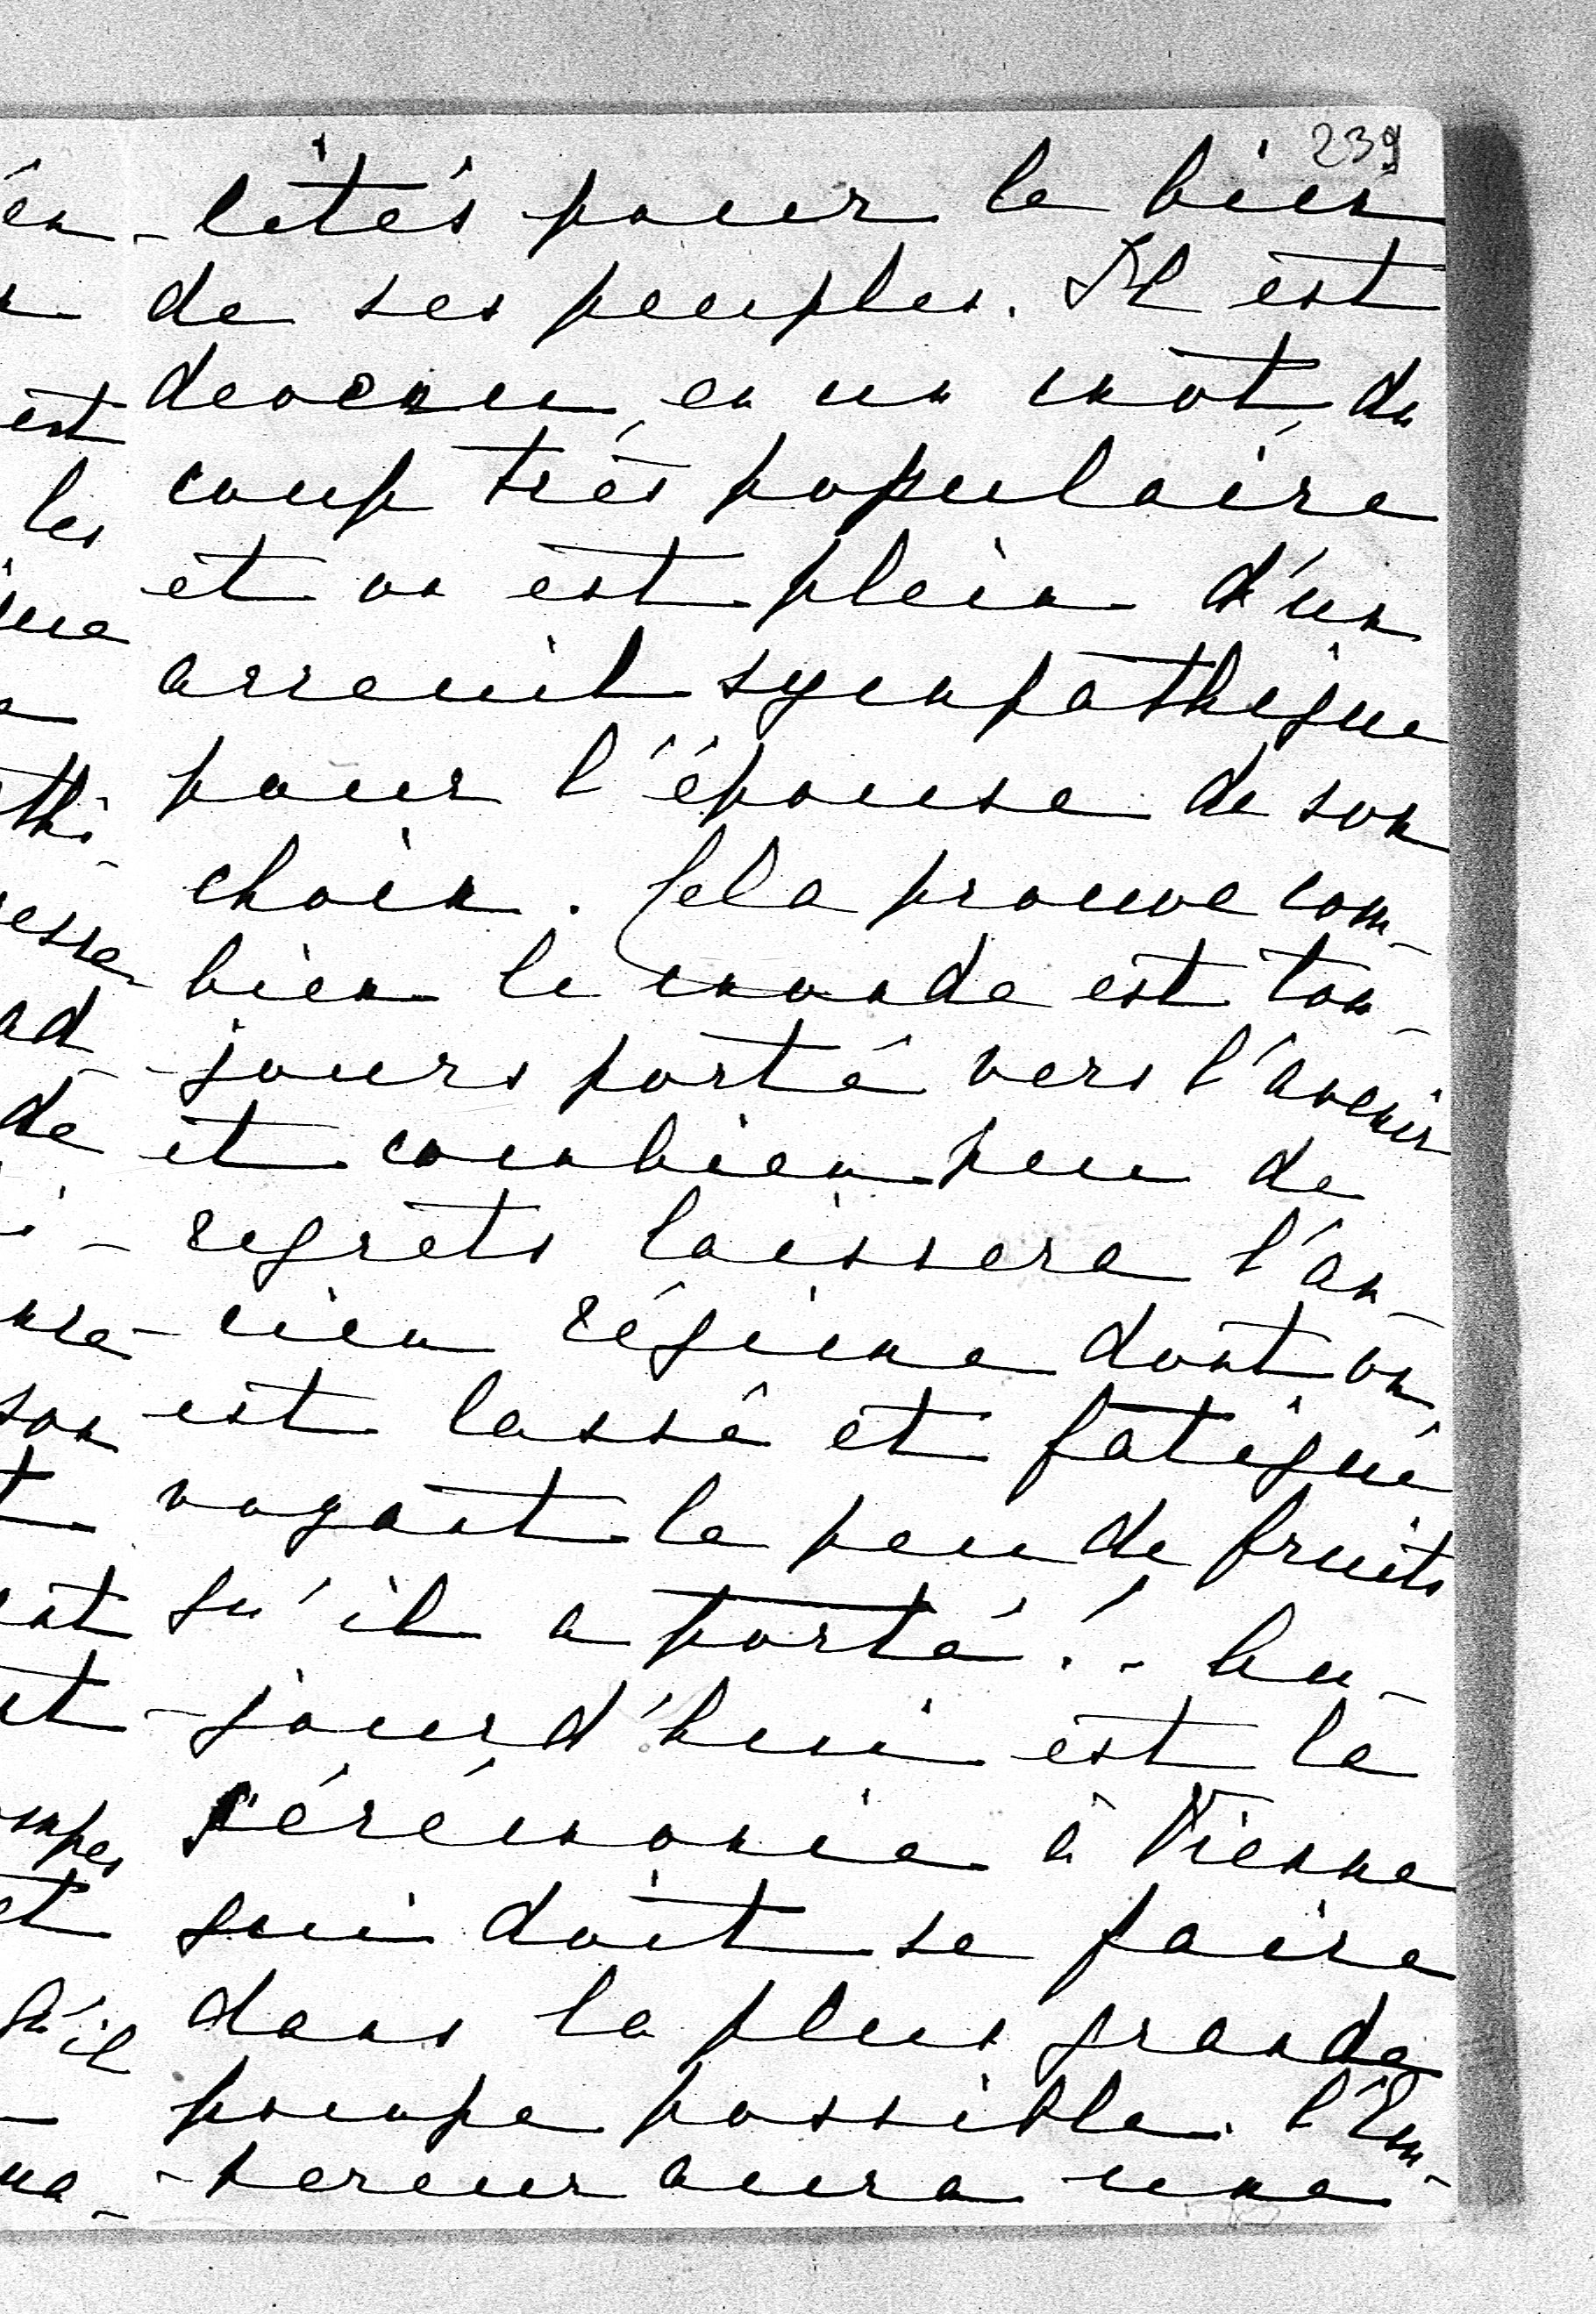 239
-lités pour le bien
de ses peuples. Il est
devenu, en un mot, du
coup très populaire
et on est plein d'un
accueil sympathique
pour l'épouse de son
choix. Cela prouve com-
bien le monde est tou-
-jours porté vers l'avenir
et combien peu de
regrets laissera l'an-
-cien régime dont on
est lassé et fatigué
voyant le peu de fruits
qu'il a porté! - Au-
-jourd'hui est la
cérémonie à Vienne
qui doit se faire
dans la plus grande
pompe possible. l'Em-
-pereur aura une